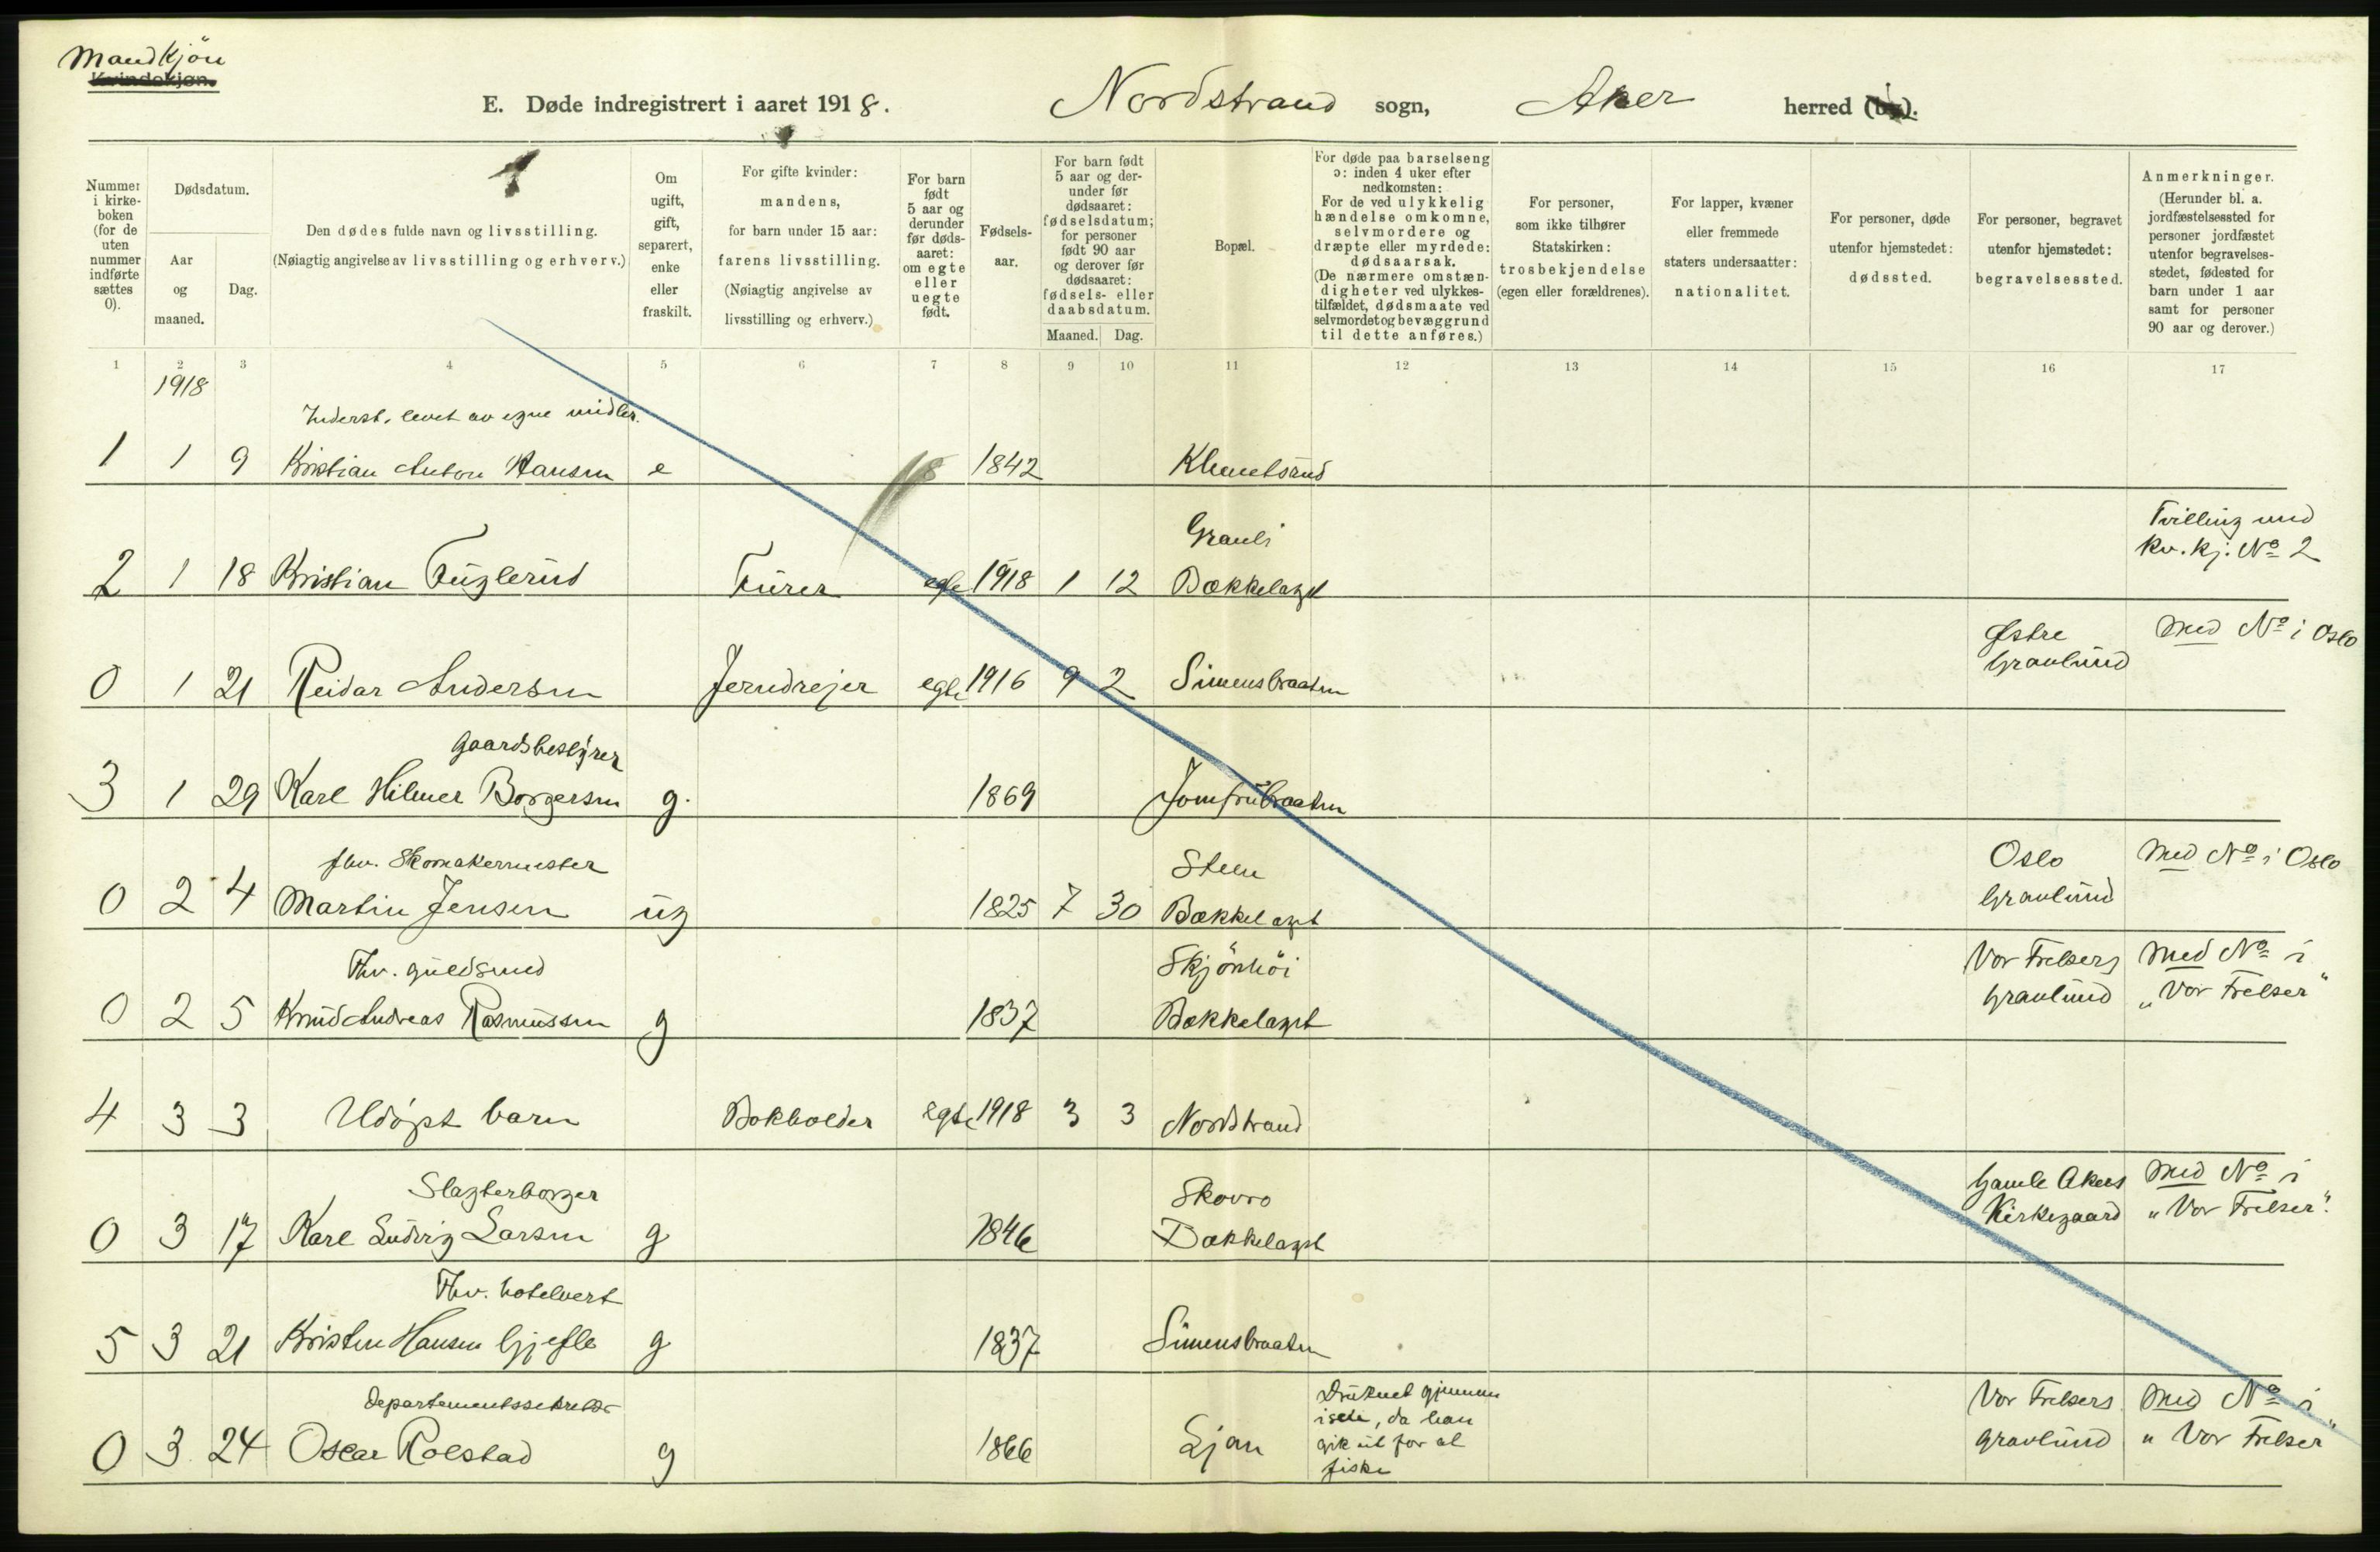 Mandkjön
Kvindekjøn.
E. Døde indregistrert i aaret 1918. Nordstrand sogn, Aker herred (by).
Nummer i kirkeboken (for de uten nummer indførte sættes 0).
Dødsdatum.
Aar og maaned.
Dag.
Den dødes fulde navn og livsstilling.
(Nøiagtig angivelse av livsstilling og erhverv.)
Om ugift, gift, separert, enke eller fraskilt.
For gifte kvinder: mandens, for barn under 15 aar: farens livsstilling. (Nøiagtig angivelse av livsstilling og erhverv.)
For barn født 5 aar og derunder før dødsaaret: om egte eller uegte født.
Fødselsaar.
For barn født 5 aar og derunder før dødsaaret: fødselsdatum; for personer født 90 aar og derover før dødsaaret: fødsels- eller daabsdatum.
Maaned. Dag.
Bopæl.
For døde paa barselseng ɔ: inden 4 uker efter nedkomsten: For de ved ulykkelig hændelse omkomne, selvmordere og dræpte eller myrdede: dødsaarsak. (De nærmere omstændigheter ved ulykkestilfældet, dødsmaate ved selvmordet og bevæggrund til dette anføres.)
For personer, som ikke tilhører Statskirken: trosbekjendelse (egen eller forældrenes).
For lapper, kvæner eller fremmede staters undersaatter: nationalitet.
For personer, døde utenfor hjemstedet: dødssted.
For personer, begravet utenfor hjemstedet: begravelsessted.
Anmerkninger. (Herunder bl. a. jordfæstelsessted for personer jordfæstet utenfor begravelsesstedet, fødested for barn under 1 aar samt for personer 90 aar og derover.)
1 2 3 4 5 6 7 8 9 10 11 12 13 14 15 16 17
1918
Inderst, levet av egne midler.
1 1 9 Kristian Anton Hansen e 1842 Klemetsrud
Grauli
Tvilling med
kv. kj. No 2
2 1 18 Kristian Fuglerud Furer egte 1918 1 12 Bækkelaget
Østre Gravlund
med No i Oslo
0 1 21 Reidar Andersen Jerndrejer egte 1916 9 2 Simensbraaten
Gaardsbestyrer
3 1 29 Karl Hilmer Borgersen g. 1869 Jomfrubraaten
fhv. Skomakermester
Steen
Oslo Gravlund
med No i Oslo
0 2 4 Martin Jensen ug 1825 7 30 Bækkelaget
Fhv. guldsmed
Skjönhöi
Vor Frelsers Gravlund
med No i "Vor Frelser"
0 2 5 Knud Andreas Rasmussen g 1837 Bækkelaget
4 3 3 Udöpt barn Bokholder egte 1918 3 3 Nordstrand
Slagterborger
Skovro
Gamle Akers Kirkegaard
med No i "Vor Frelser".
0 3 17 Karl Ludvig Larsen g 1846 Bækkelaget
Fhv. hotelvert
5 3 21 Kristen Hansen Gjefle g 1837 Simensbraaten
Departementssekretær
Druknet gjennem
isen, da han
gik ut for at
fiske
Vor Frelsers Gravlund
med No i "Vor Frelser"
0 3 24 Oscar Rolstad g 1866 Ljan